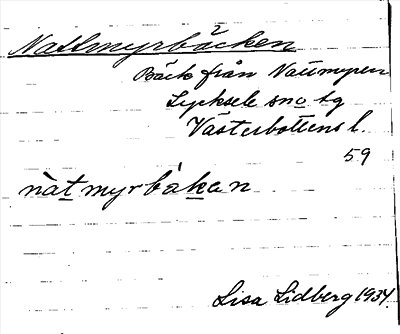 Nattmyrbäcken
Bäck från Nattmyren
Lycksele sn o tg
Västerbottens l.
59
nàtmyrbákan
Lisa Lidberg 1934.